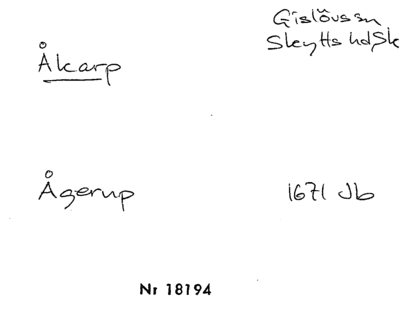 Gislövs sn
Åkarp Skytts hd Sk
Ågerup 1671 Jb
Nr 18194